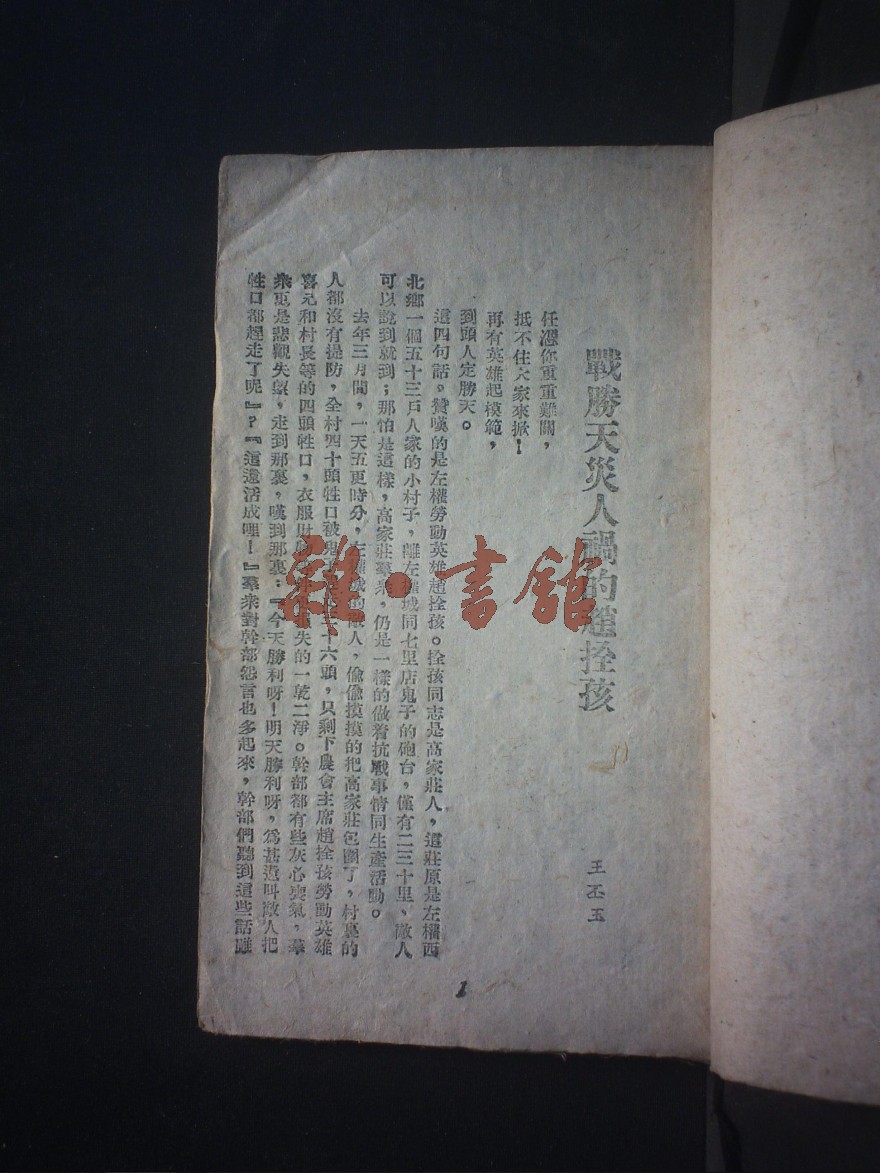 戰勝天災人禍的趙拴孩
王丕玉
任憑你重重難關，
抵不住大家來掀！
再有英雄起模範，
到頭人定勝天。
這四句話。贊嘆的是左權勞動英雄趙拴孩。拴孩同志是高家莊人，這莊原是左權西
北鄉一個五十三戶人家的小村子，離左權城同七里店鬼子的砲台，僅有二三十里、敵人
可以說到就到；那怕是這樣，高家莊羣衆，仍是一樣的做着抗戰事情同生產活動。
去年三月間，一天五更時分，左權城的敵人，偷偷摸摸的把高家莊包圍了，村裏的
人都沒有提防，全村四十頭牲口被鬼十六頭，只剩下農會主席趙拴孩勞動英雄
喜元和村長等的四頭牲口，衣服財失的一乾二淨。幹部都有些灰心喪氣，羣
衆更是悲觀失望，走到那裏，嘆到那裏：『今天勝利呀！明天勝利呀，爲甚還叫敵人把
牲口都趕走了呢』？『這還活成哩！』羣衆對幹部怨言也多起來，幹部們聽到這些話雖
1
雜·書館